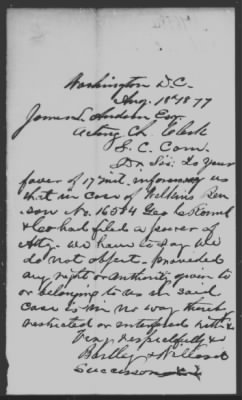 Washington D.C.
Aug. 18th 1877
James
Acting Ch. Clerk
S. C. Com.
Dr Sir: To your
favor of 17 inst. informing us
that in case of Wilkins
son No. 16084 Geo
& Co had filed a power of
Atty. We have to say we
do not object. provided
any right or authority given to
or belonging to us in said
case is in no way thereby
restricted or interfered with &
Very respectfully &
Bartley &
Successors